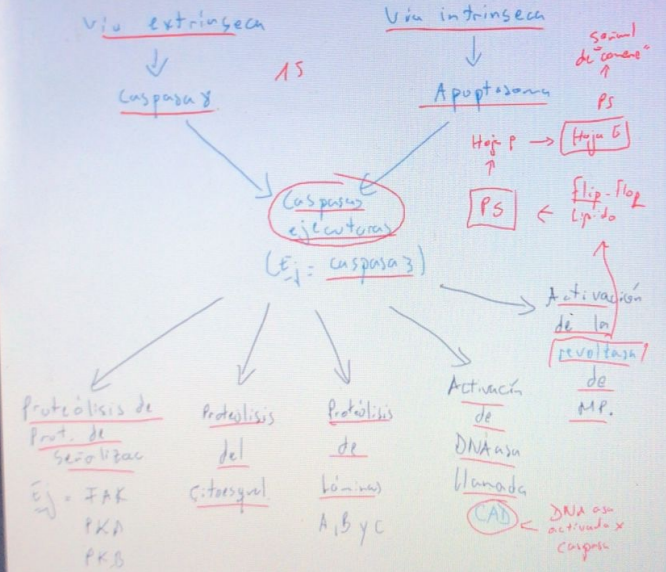 Vía extrínseca
Vía intrínseca
Caspasa 8
15
Apoptosoma
señal
de "comeme"
PS
Hoja P → Hoja E
PS ← Flip-Flop
Lípido
Caspasas
ejecutoras
(Ej = caspasa 3)
Activación
de la
revoltasa
de
MP.
Proteólisis de
Prot. de
señalizac
Ej = FAK
PKA
PKB
Proteólisis
del
Citoesquel.
Proteólisis
de
Láminas
A, B y C
Activación
de
DNAasa
llamada
CAD
DNAasa
activada x
caspasa